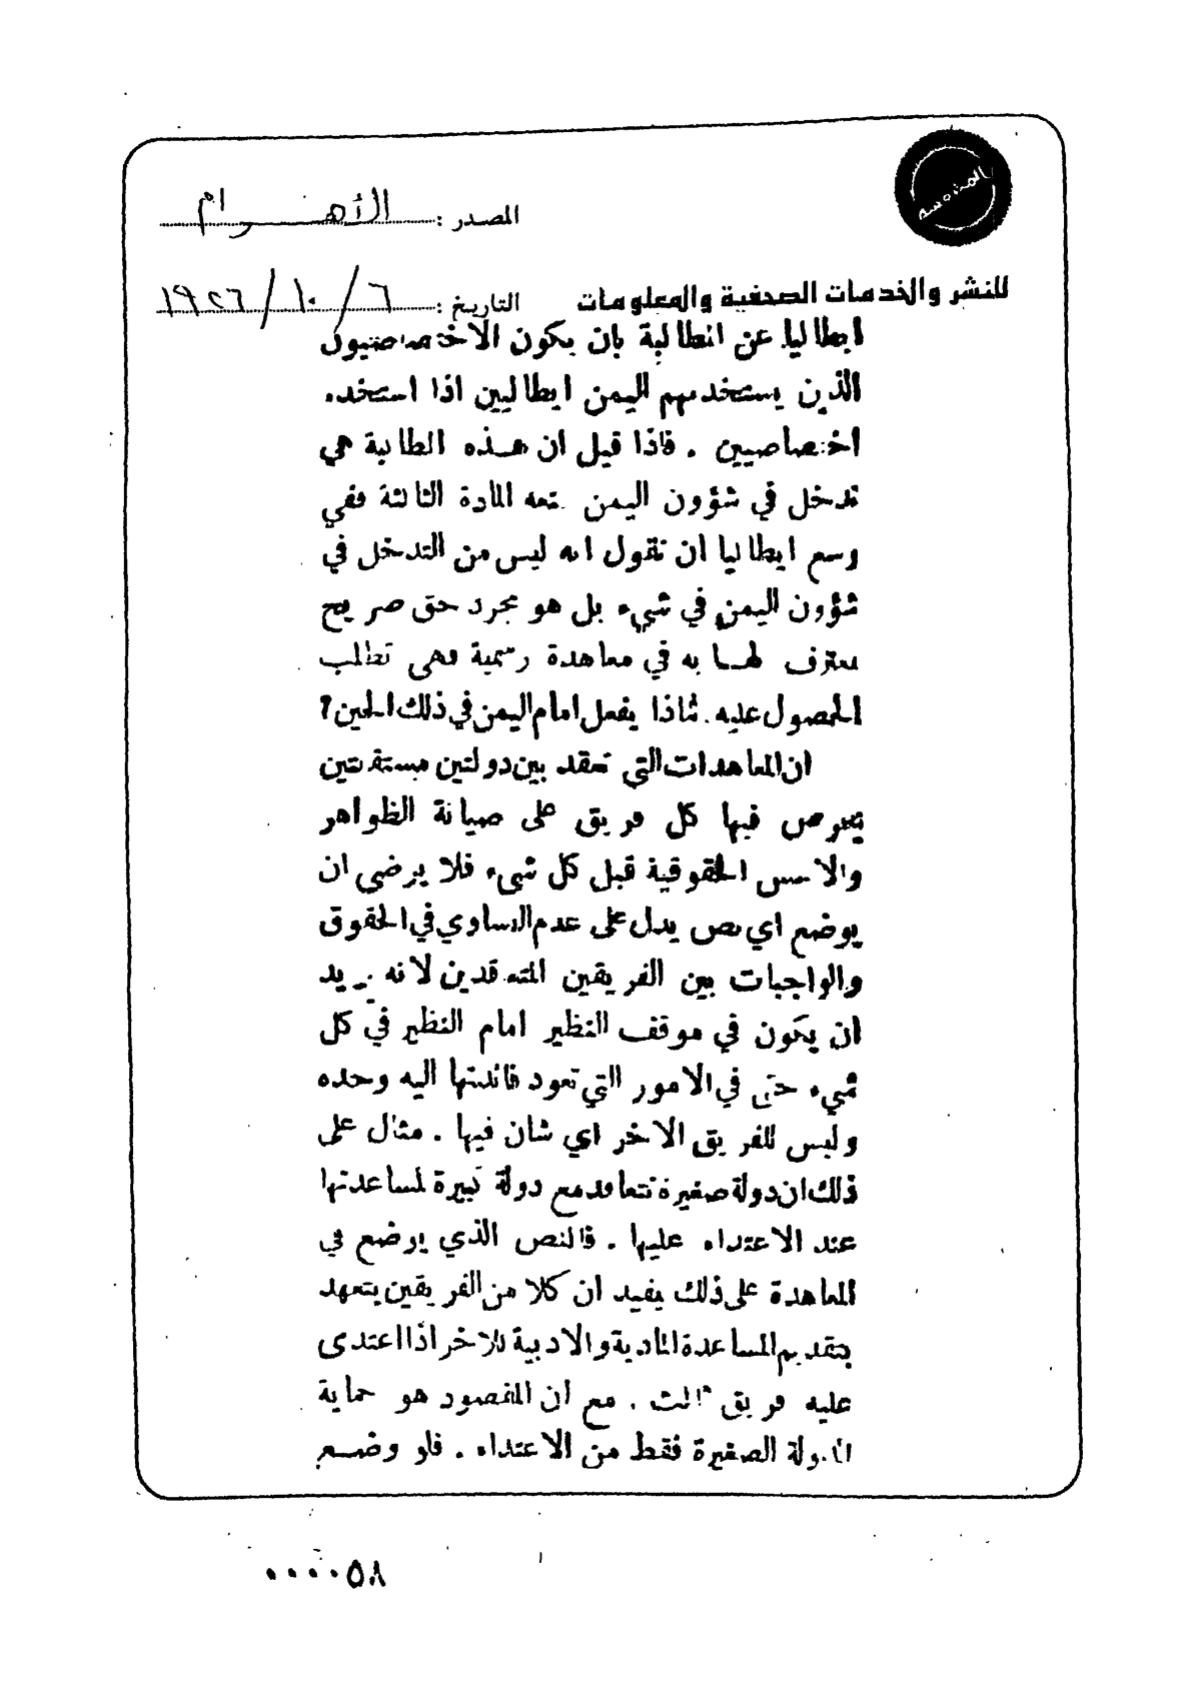 المصدر : الأهرام
للنشر والخدمات الصحفية والمعلومات التاريخ : ٦ / ١٠ / ١٩٢٦
ايطاليا عن المطالبة بان يكون الاختصاصيون
الذين يستخدمهم اليمن ايطاليين اذا استخدم
اختصاصيين . فاذا قيل ان هذه المطالبة هي
تدخل في شؤون اليمن المادة الثالثة ففي
وسع ايطاليا ان تقول انه ليس من التدخل في
شؤون اليمن في شيء بل هو مجرد حق صريح
معترف لها به في معاهدة رسمية وهى تطلب
الحصول عليه . فماذا يفعل امام اليمن في ذلك الحين ؟
ان المعاهدات التي تعقد بين دولتين مستقلتين
يحرص فيها كل فريق على صيانة الظواهر
والاسس الحقوقية قبل كل شيء فلا يرضى ان
يوضع اي نص يدل على عدم التساوي في الحقوق
والواجبات بين الفريقين المتعاقدين لانه يريد
ان يكون في موقف النظير امام النظير في كل
شيء حتى في الامور التي تعود فائدتها اليه وحده
وليس للفريق الاخر اي شان فيها . مثال على
ذلك ان دولة صغيرة تتعاهد مع دولة كبيرة لمساعدتها
عند الاعتداء عليها . فالنص الذي يوضع في
المعاهدة على ذلك يفيد ان كلا من الفريقين يتعهد
بتقديم المساعدة المادية والادبية للاخر اذا اعتدى
عليه فريق ثالث . مع ان المقصود هو حماية
الدولة الصغيرة فقط من الاعتداء . فلو وضع
٠٠٠٠٥٨